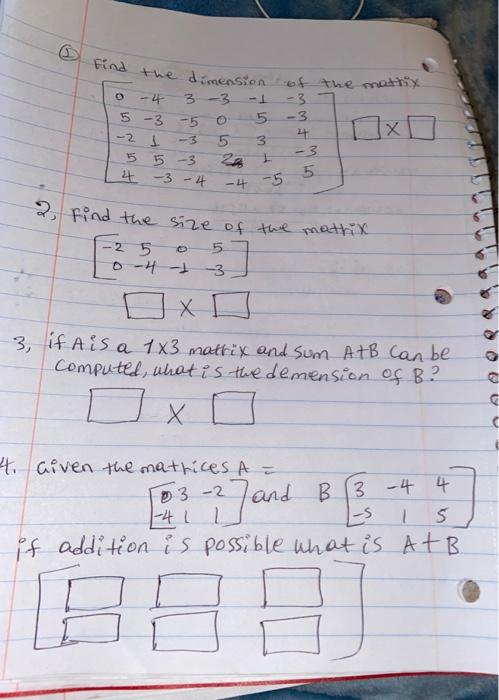 ① Find the dimension of the mattix
0 -4 3 -3 -1 -3
5 -3 -5 0 5 -3
-2 1 -3 5 3 4
5 5 -3 1 -3
4 -3 -4 -4 -5 5
□ X □
2, Find the size of the mattix
-2 5 0 5
0 -4 -1 -3
□ X □
3, if A is a 1x3 mattix and sum A+B can be
computed, what is the demension of B?
□ X □
4. Given the matrices A =
0 3 -2 and B 3 -4 4
-4 1 1 -5 1 5
if addition is possible what is A+B